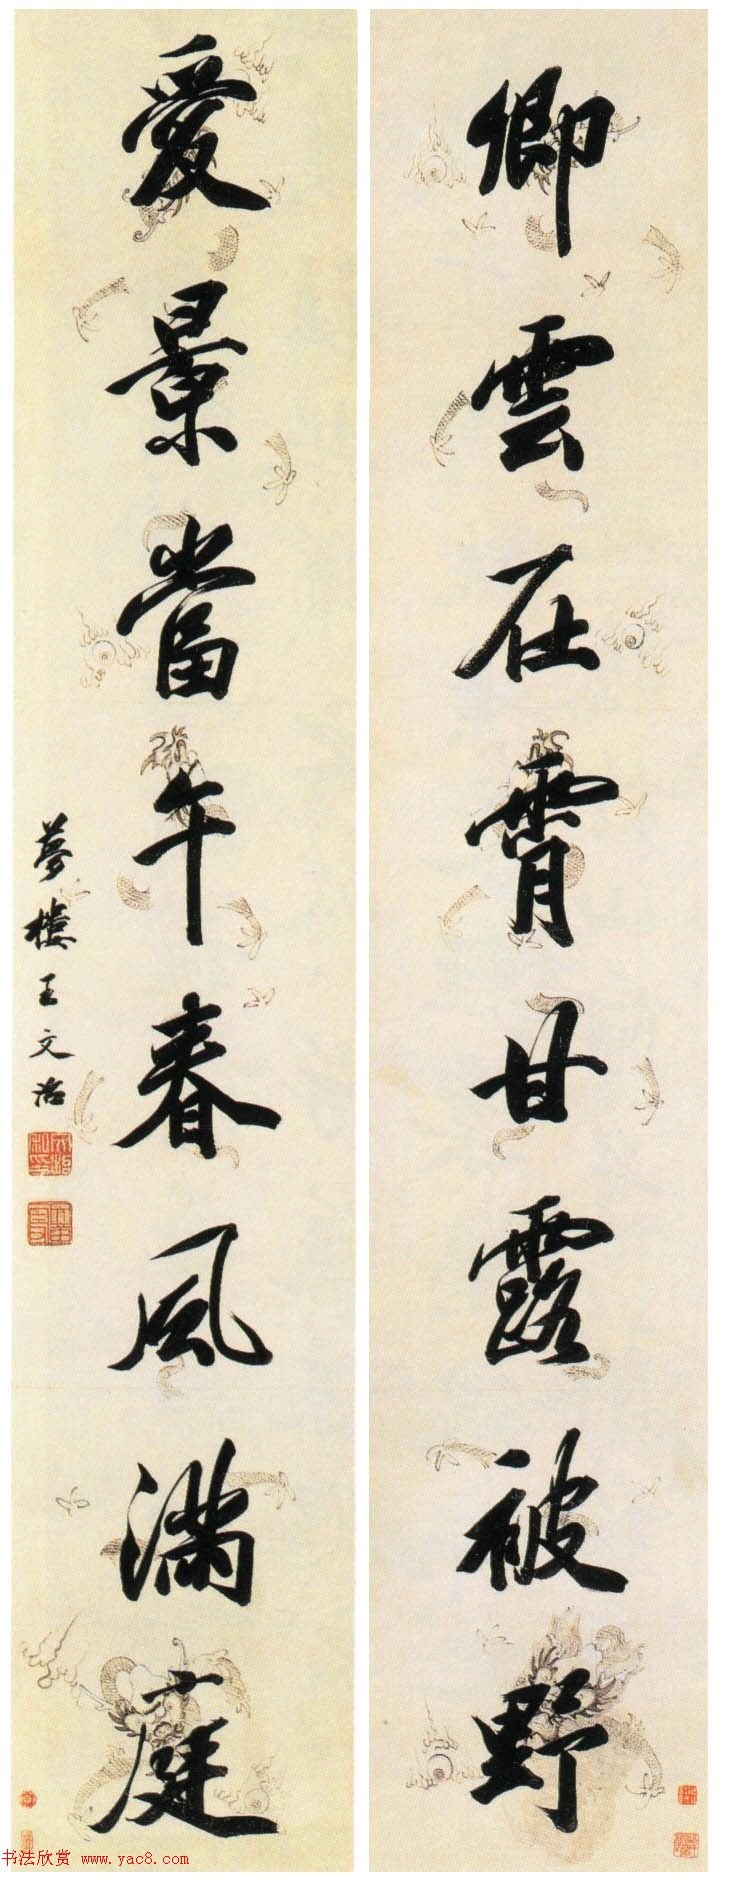 卿雲在霄甘露被野
愛景當午春風滿庭
夢樓王文治
书法欣赏 www.yac8.com